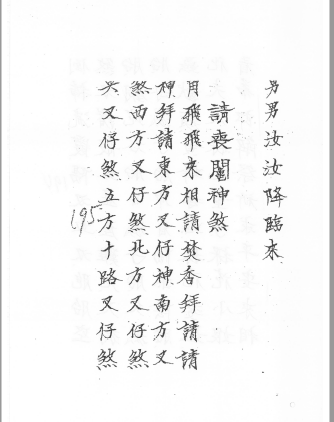 男男汝汝降臨來
請喪闍神煞
月飛飛來相請焚香拜請請
神拜請東方又仔神南方又
煞西方又仔煞北方又仔煞
又仔煞五方十路又仔煞
195